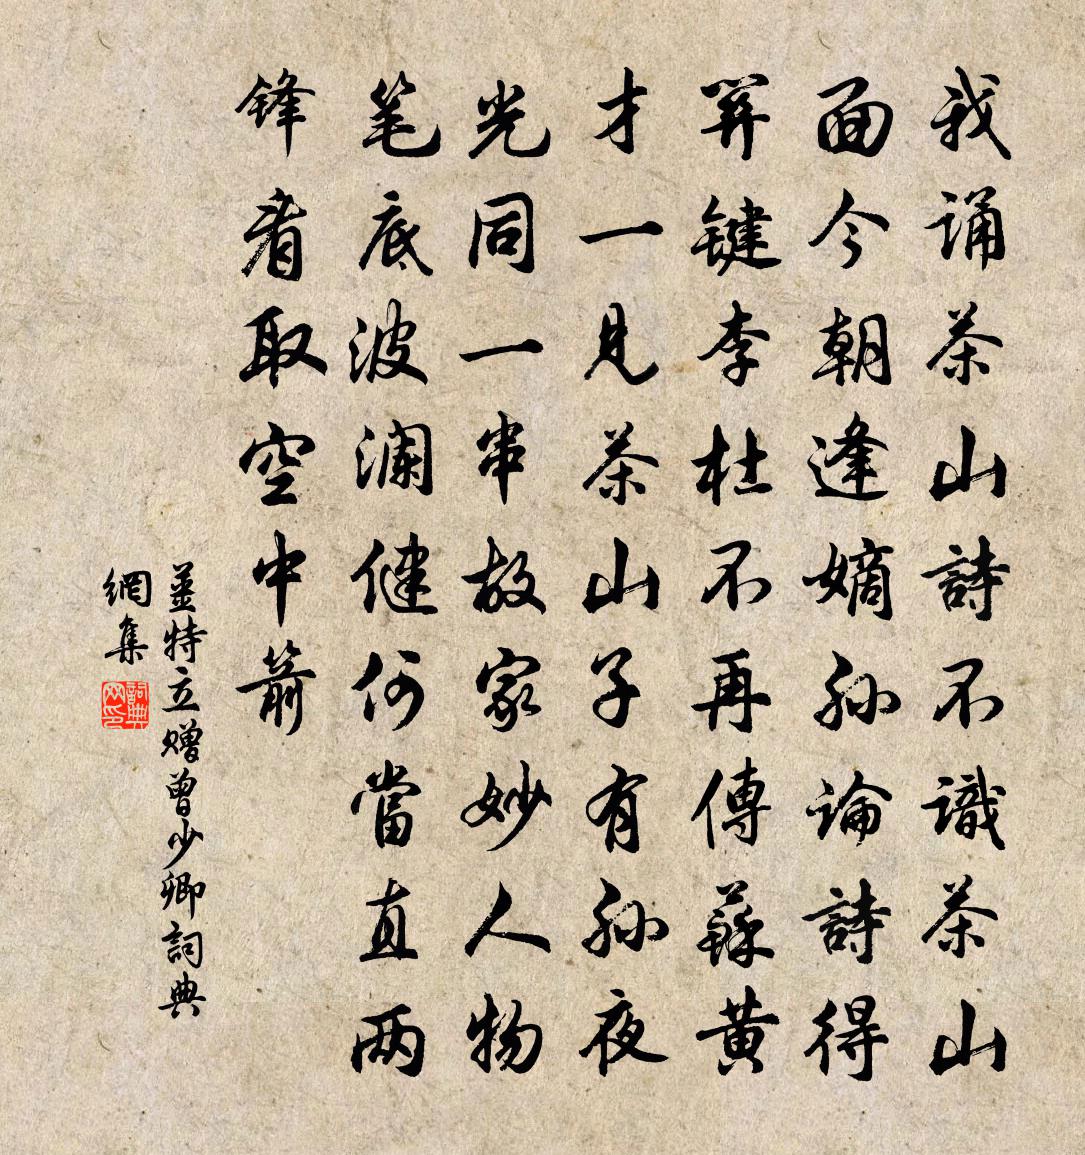 我诵茶山詩不識茶山
面今朝逢嫡孙論詩得
関键李杜不再傳蘇黄
才一見茶山子有孙夜
光同一串故家妙人物
笔底波澜健何當直两
锋看取空中箭
姜特立赠曾少卿詞典
網集
詞典网印